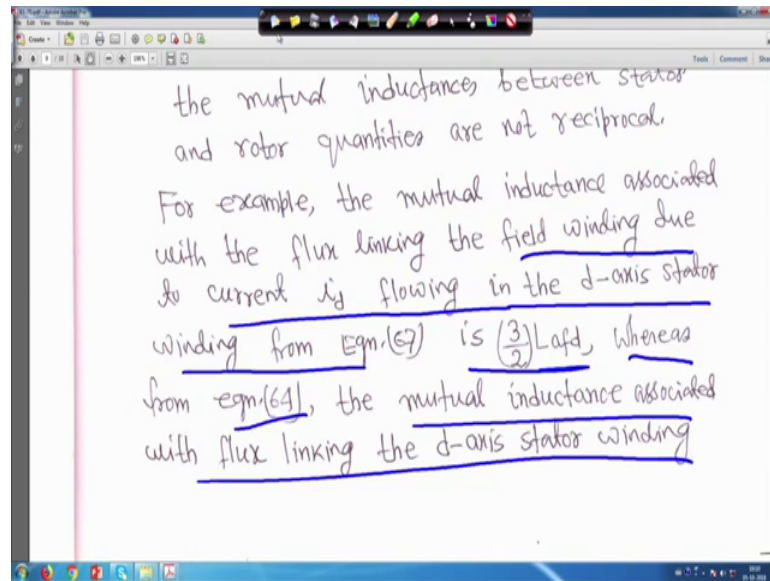 File Edit View Window Help
Create
Tools Comment
the mutual inductances between stator
and rotor quantities are not reciprocal.
For example, the mutual inductance associated
with the flux linking the field winding due
to current id flowing in the d-axis stator
winding from Eqn.(67) is (3/2)Lafd, whereas
from eqn.(64), the mutual inductance associated
with flux linking the d-axis stator winding